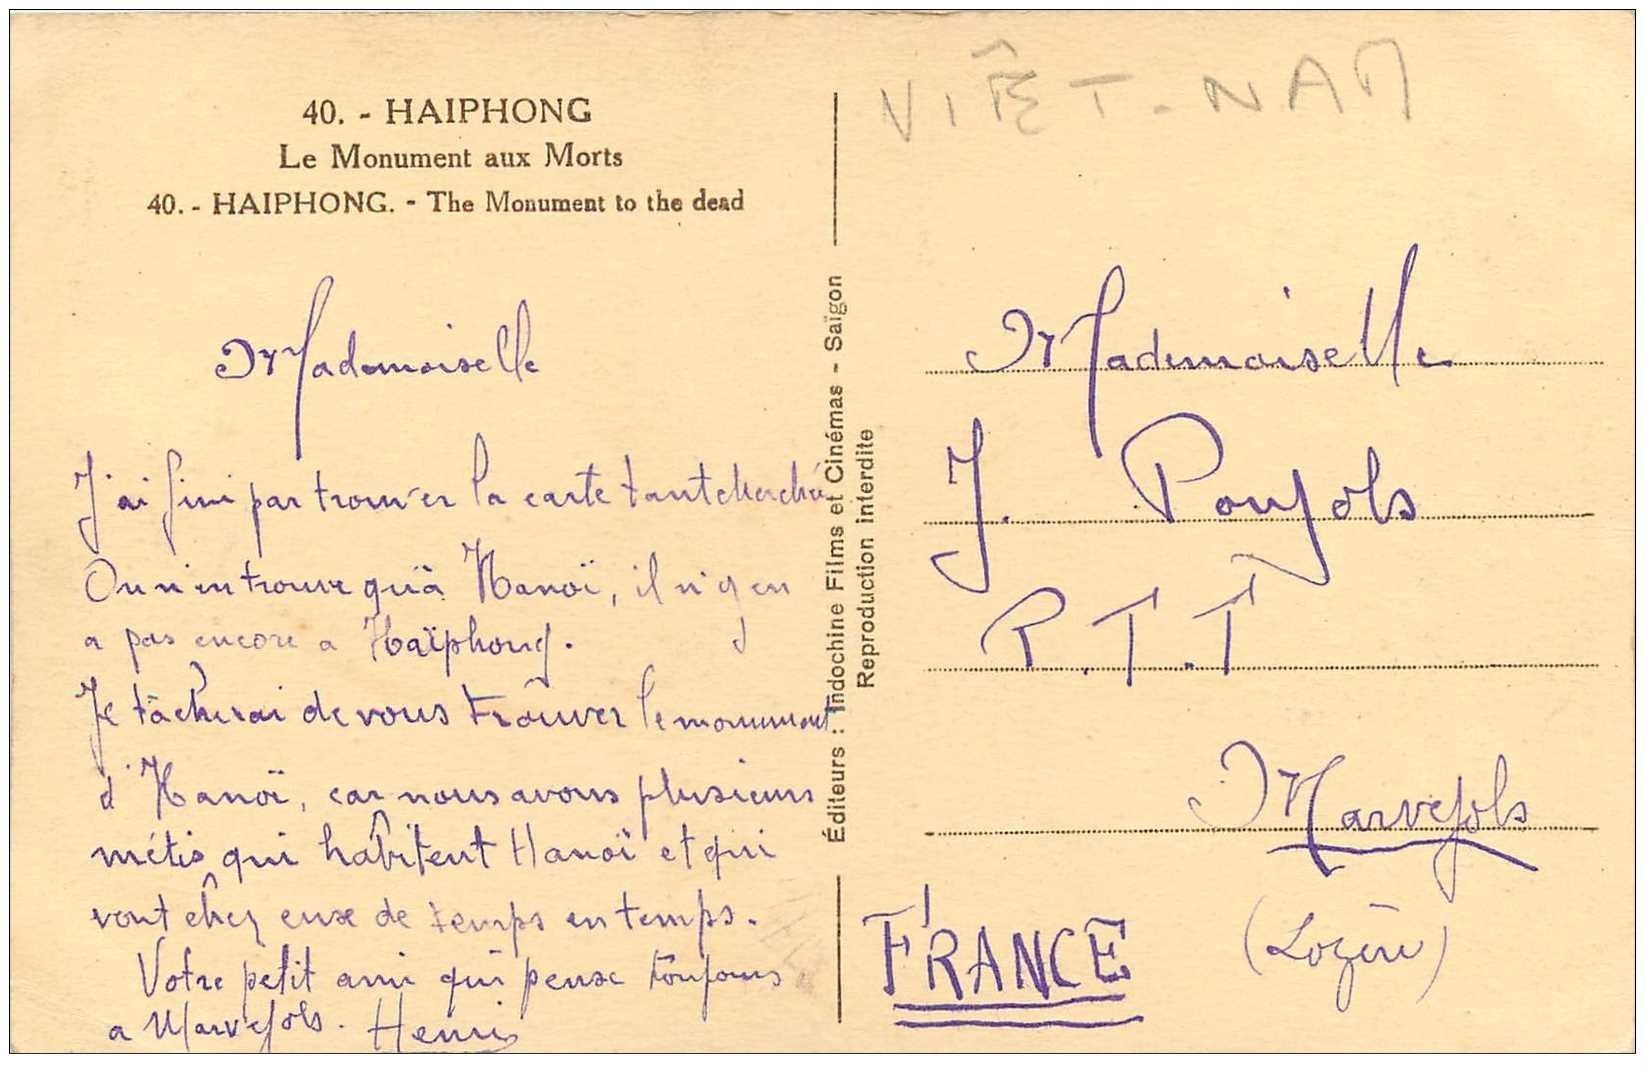 40. - HAIPHONG
Le Monument aux Morts
40. - HAIPHONG. - The Monument to the dead
Mademoiselle
J'ai fini par trouver la carte tant cherchée
On n'en trouve qu'à Hanoï, il n'y en
a pas encore a Haïphong.
Je tâcherai de vous trouver le monument
d'Hanoï, car nous avons plusieurs
métis qui habitent Hanoï et qui
vont chez eux de temps en temps.
Votre petit ami qui pense toujours
a Marvejols. Henri
Éditeurs : Indochine Films et Cinémas - Saïgon
Reproduction interdite
VIÊT-NAM
Mademoiselle
J. Poujols
P.T.T
Marvejols
(Lozère)
FRANCE